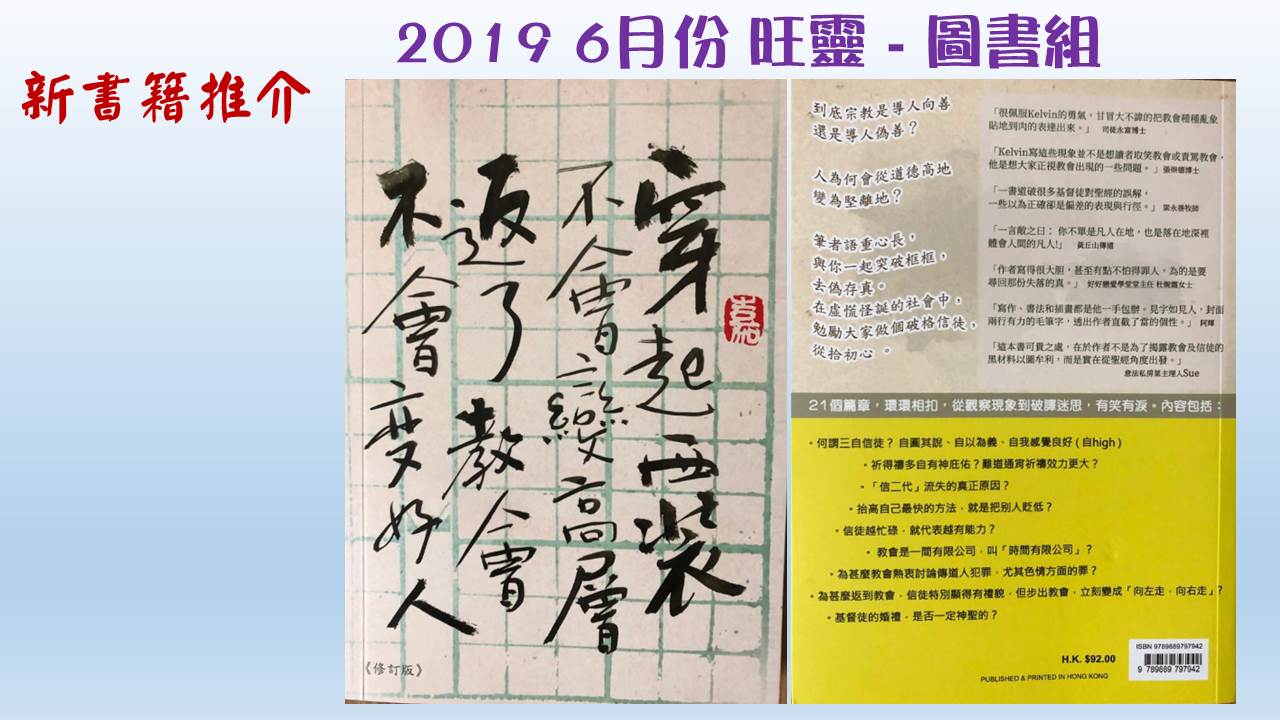 2019 6月份 旺靈 - 圖書組
新書籍推介
穿起西裝
不會變高層
返了教會
不會变好人
《修訂版》
到底宗教是導人向善
還是導人偽善？
人為何會從道德高地
變為堅離地？
筆者語重心長，
與你一起突破框框，
去偽存真。
在虛慌怪誕的社會中，
勉勵大家做個破格信徒，
從拾初心 。
「很佩服Kelvin的勇氣，甘冒大不諱的把教會種種亂象
貼地到肉的表達出來。」 司徒永富博士
「Kelvin寫這些現象並不是想讀者取笑教會或責罵教會，
他是想大家正視教會出現的一些問題。 」張樹德博士
「一書道破很多基督徒對聖經的誤解，
一些以為正確卻是偏差的表現與行徑。」 梁永善牧師
「一言敝之曰： 你不單是凡人在地，也是落在地深裡
體會人間的凡人!」 黃丘山傳道
「作者寫得很大胆，甚至有點不怕得罪人，為的是要
尋回那份失落的真。」 好好戀愛學堂堂主任 杜婉霞女士
「寫作、書法和插畫都是他一手包辦。見字如見人，封面
兩行有力的毛筆字，透出作者直截了當的個性。」 阿輝
「這本書可貴之處，在於作者不是為了揭露教會及信徒的
黑材料以圖牟利，而是實在從聖經角度出發。」
意法私房菜主理人Sue
21個篇章，環環相扣，從觀察現象到破譯迷思，有笑有淚。內容包括：
• 何謂三自信徒？ 自圓其說、自以為義、自我感覺良好 ( 自high )
• 祈得禱多自有神庇佑？難道通宵祈禱效力更大？
• 「信二代」流失的真正原因？
• 抬高自己最快的方法，就是把別人貶低？
• 信徒越忙碌，就代表越有能力？
• 教會是一間有限公司，叫「時間有限公司」？
• 為甚麼教會熱衷討論傳道人犯罪，尤其色情方面的罪？
• 為甚麼返到教會，信徒特別顯得有禮貌，但步出教會，立刻變成「向左走，向右走」?
• 基督徒的婚禮，是否一定神聖的？
ISBN 9789889797942
H.K. $92.00
9 789889 797942
PUBLISHED & PRINTED IN HONG KONG